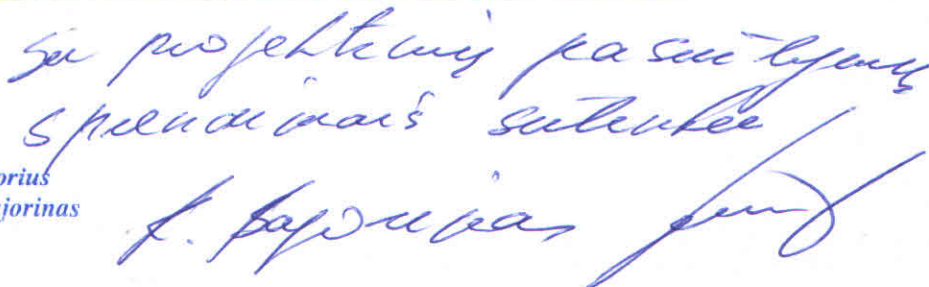 Su projektinių pasiūlymų
sprendiniais sutinku
orius
ajorinas
K. Bajorinas